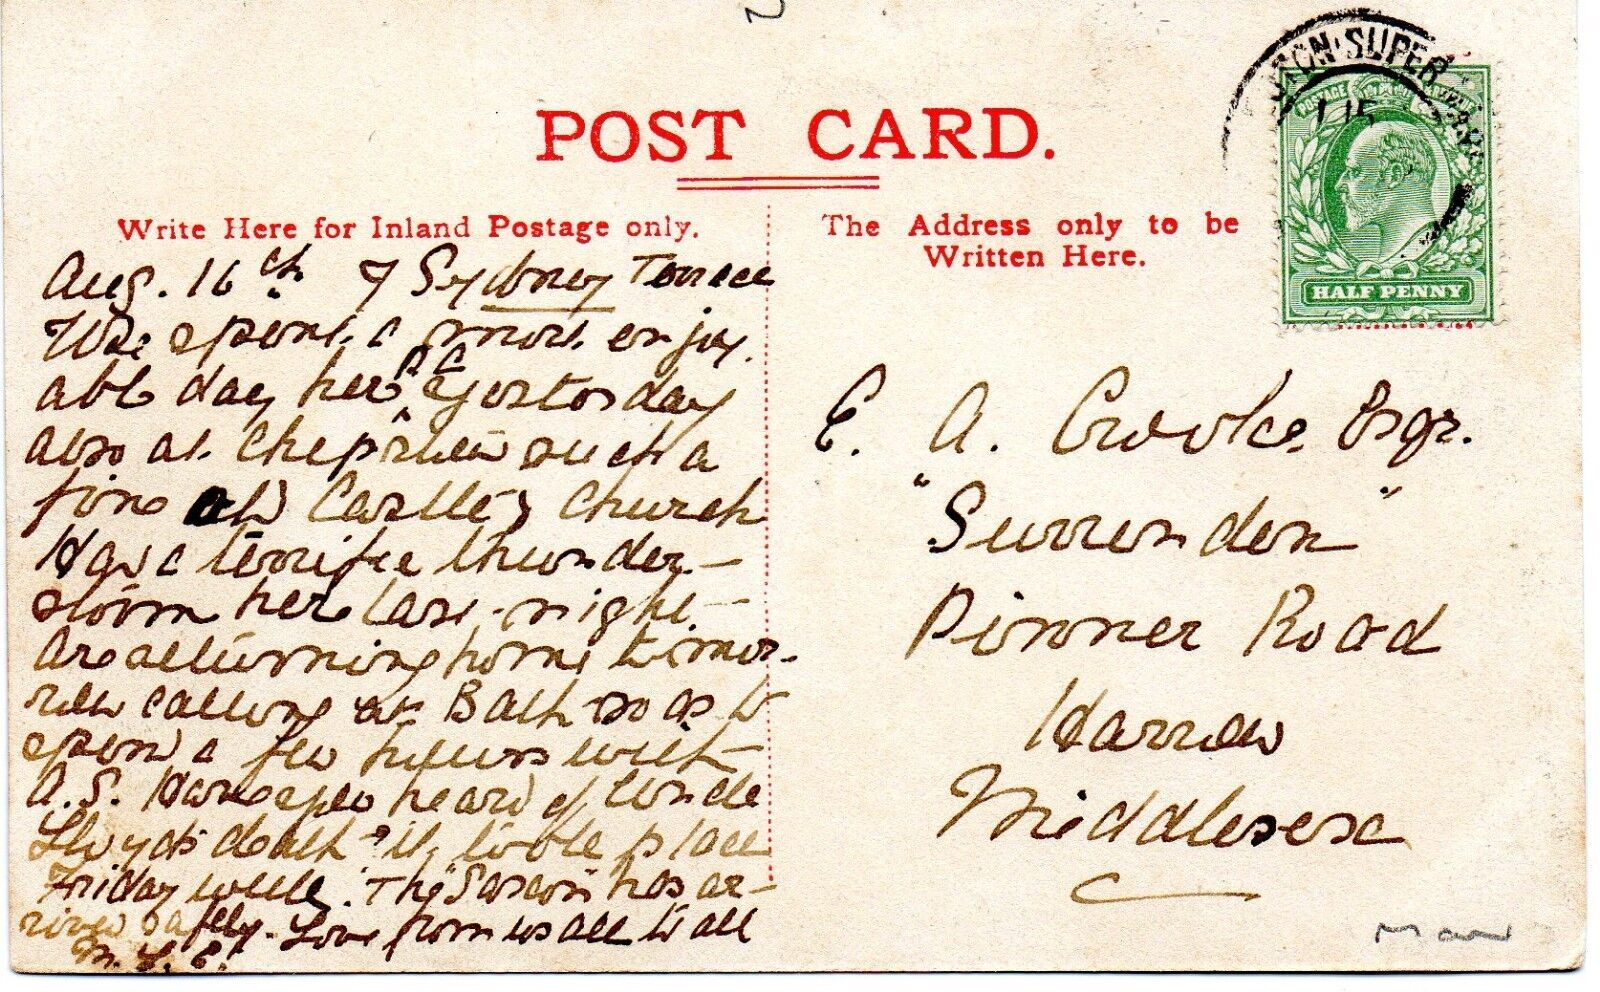 POST CARD.
Write Here for Inland Postage only.
The Address only to be
Written Here.
POSTAGE
HALF PENNY
TON·SUPER
Aug. 16th 7 Sydney Terrace
We spent a most enjoy.
able day here yesterday
also at Chepstow such a
fine old Castle & Church
Had a terrific thunder-
storm here last night -
Are returning home tomor-
row calling at Bath so as to
spend a few hours with
A.S. Have you heard of Uncle
Lloyd's death - it took place
Friday week. The has ar-
rived safely. Love from us all to all
M. L. E.
E. A. Crooke Esqr.
"Surrenden"
Pinner Road
Harrow
Middlesex